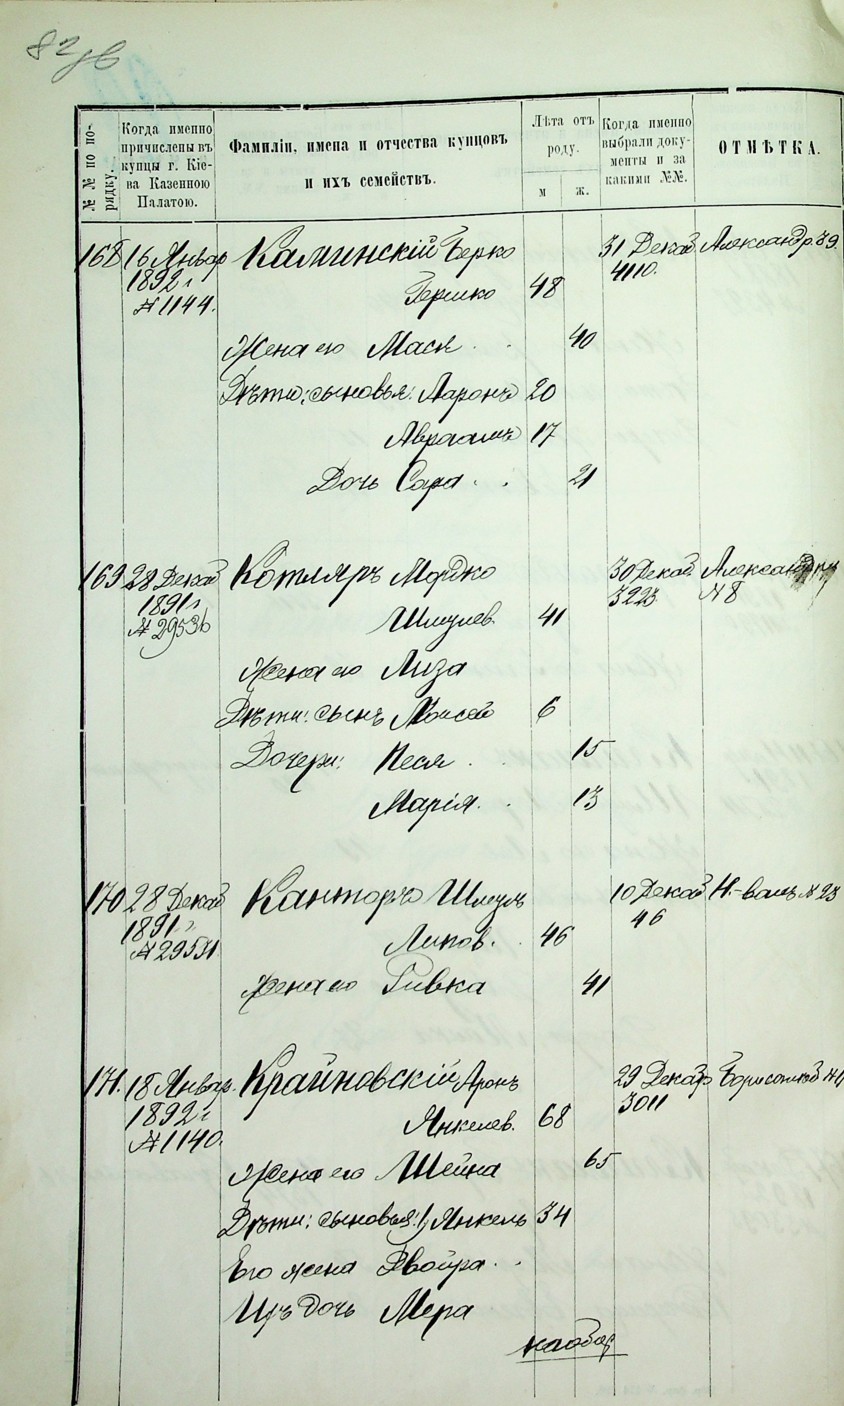 82 об
№№ по по-
рядку.
Когда именно
причислены въ
купцы г. Кіе-
ва Казенною
Палатою.
Фамиліи, имена и отчества купцовъ
и ихъ семействъ.
Лѣта отъ
роду.
м
ж.
Когда именно
выбрали доку-
менты и за
какими №№.
ОТМѢТКА.
168 16 Январ Каминскій Берко 31 Декаб. Александр. 39.
1892 г 4110.
№ 1144. Гершко 48
Жена его Мася 40
Дѣти: сыновья: Ааронъ 20
Авраамъ 17
Дочь Сара 21
169 28 Декаб Котляръ Мордко 30 Декаб.
1891 г 3223 № 8
№ 29536 Шмулев. 41
Жена его Лиза
Дѣти: сынъ Моисей 6
Дочери: Песя 15
Марія 13
170 28 Декаб Канторъ Шмуль 10 Декаб Н.-Валъ № 23
1891 г 46
№ 29531 Липов. 46
Жена его Ривка 41
171. 18 Январ. Крайновскій Аронъ 29 Декаб
1892 г 3011
№ 1140. Янкелев. 68
Жена его Шейна 65
Дѣти: сыновья: 1, Янкель 34
Его жена Двойра
Ихъ дочь Мера
на обор